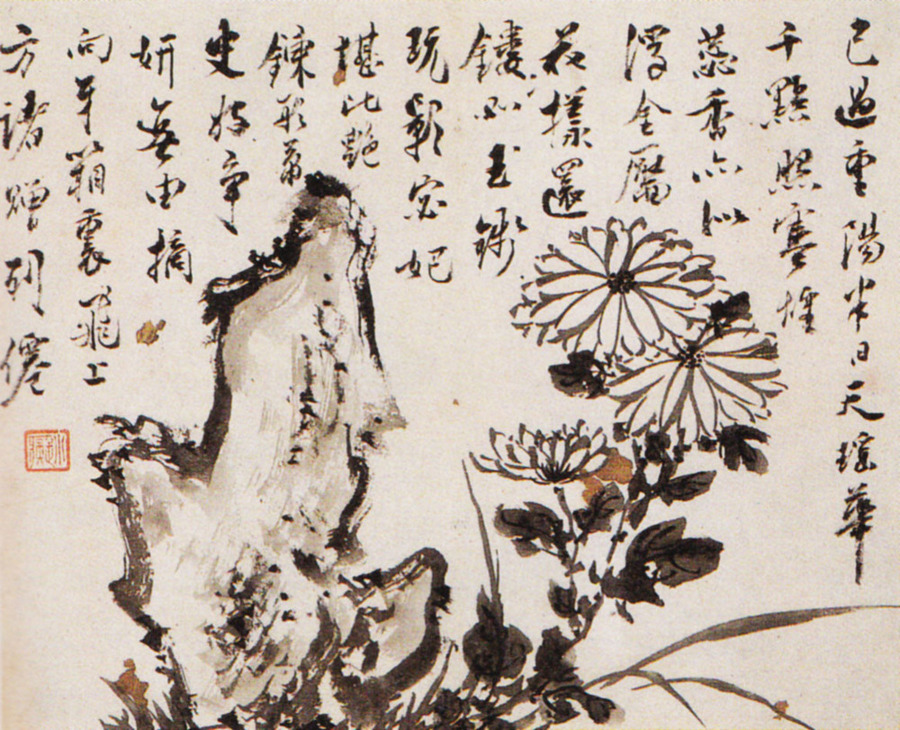 已過重陽半日天琅華
千點照寒煙
蕊香亦似
浮金靨
花樣還
鏤如玉錢
玩影宓妃
堪比艷
鍊形蕭
史好爭
妍無由摘
向牙箱裏飛上
方諸贈列僊